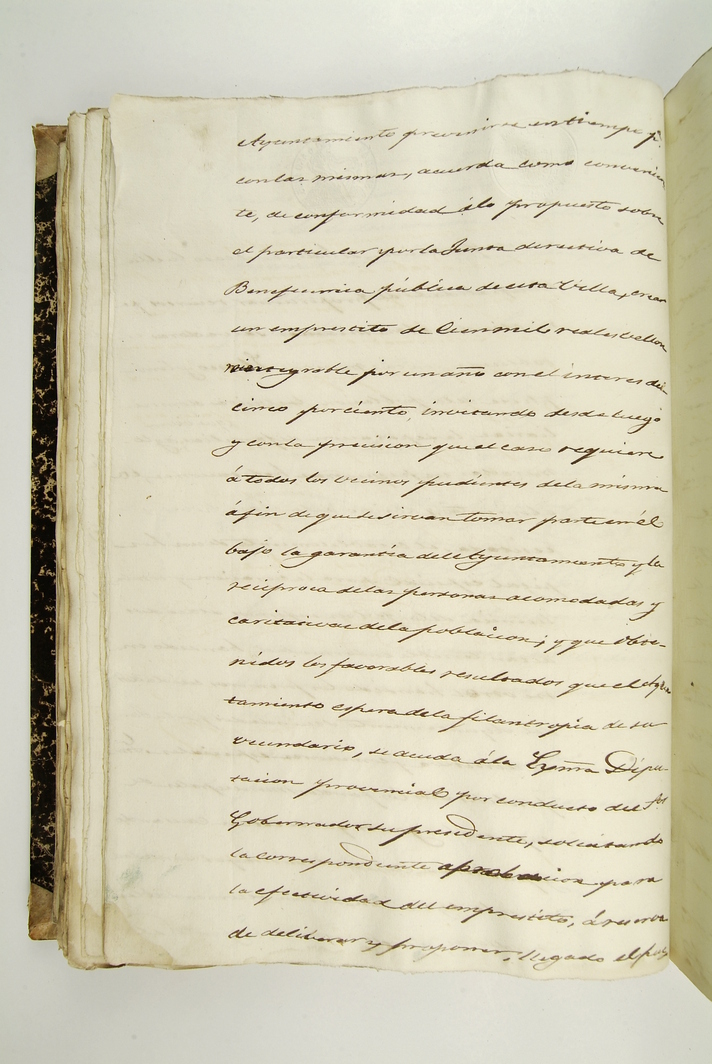 Ayuntamiento prevenirse en tiempo p.ª
con las mismas, acuerda como convenien
te, de conformidad á lo propuesto sobre
el particular por la Junta directiva de
Beneficencia pública de esta Villa, crear
un emprestito de Cien mil reales vellon
reintegrable por un año con el interes del
cinco por ciento, invitando desde luego
y con la precision que el caso requiere
á todos los vecinos pudientes de la misma
á fin de que se sirvan tomar parte en él
bajo la garantía del Ayuntamiento y la
reciproca de las personas acomodadas y
caritativas de la poblacion; y que obte-
nidos los favorables resultados que el Ayun
tamiento espera de la filantropía de su
vecindario, se acuda á la Exma Dipu-
tacion provincial por conducto del Sor
Gobernador su presidente, solicitando
la correspondiente aprobacion para
la efectividad del emprestito, á reserva
de deliberar y proponer, llegado el